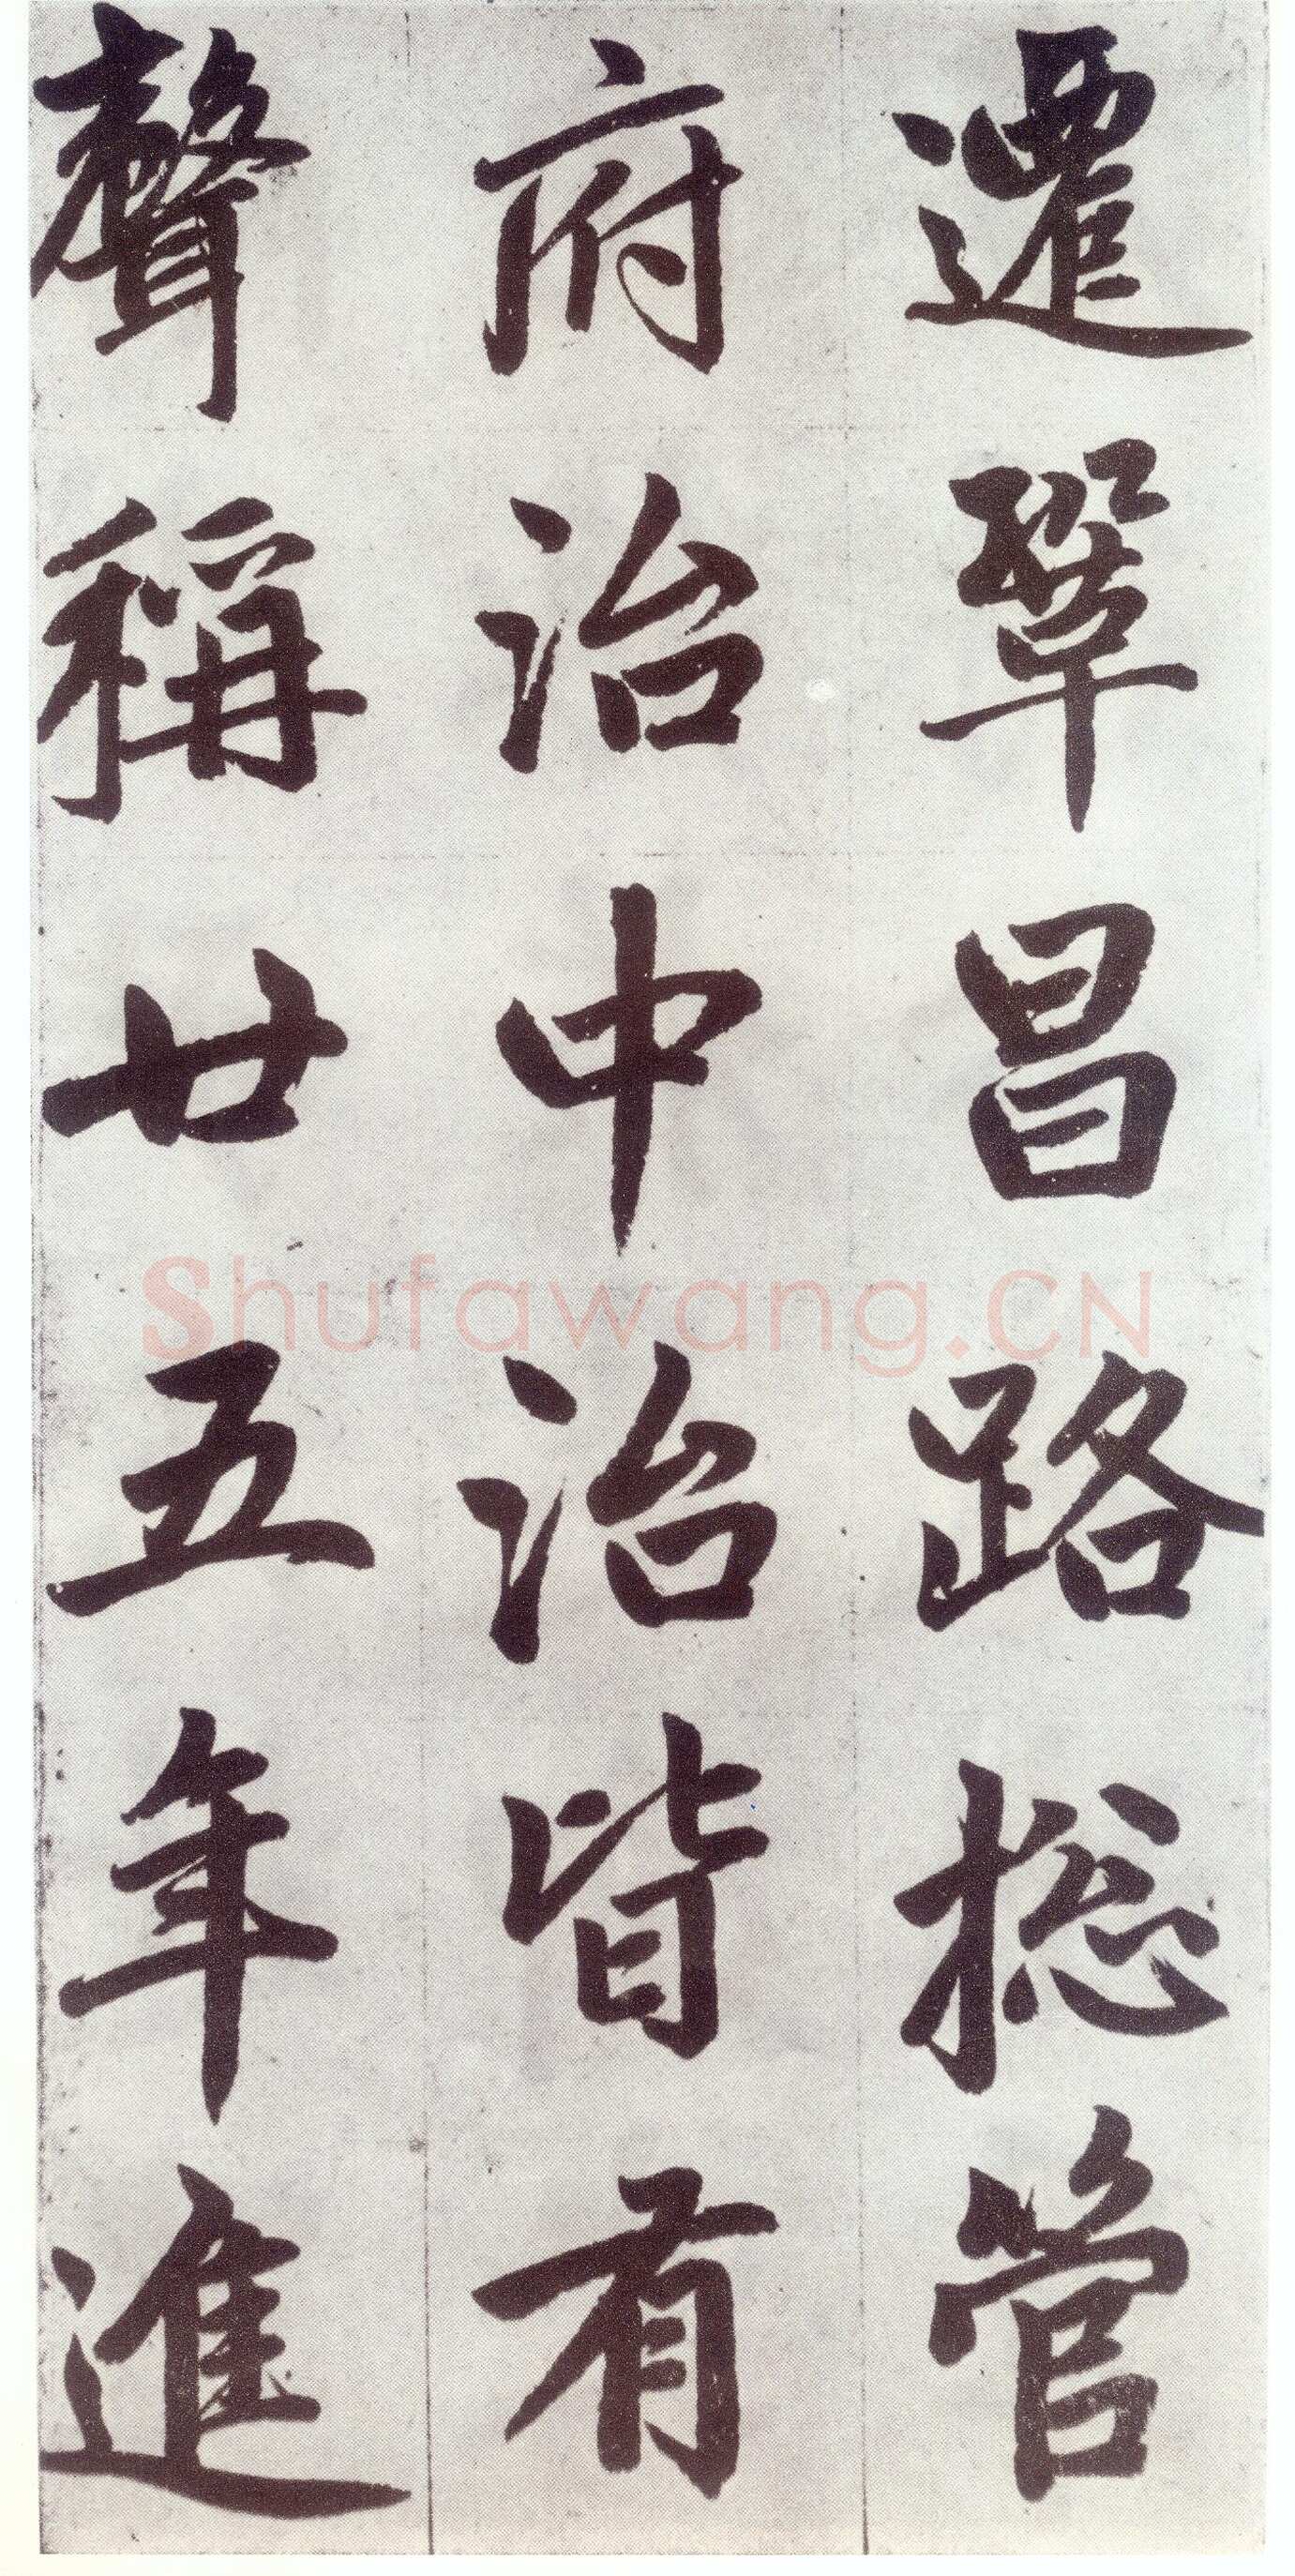 遷鞏昌路捴管
府治中治皆有
聲稱廿五年進
Shufawang.CN